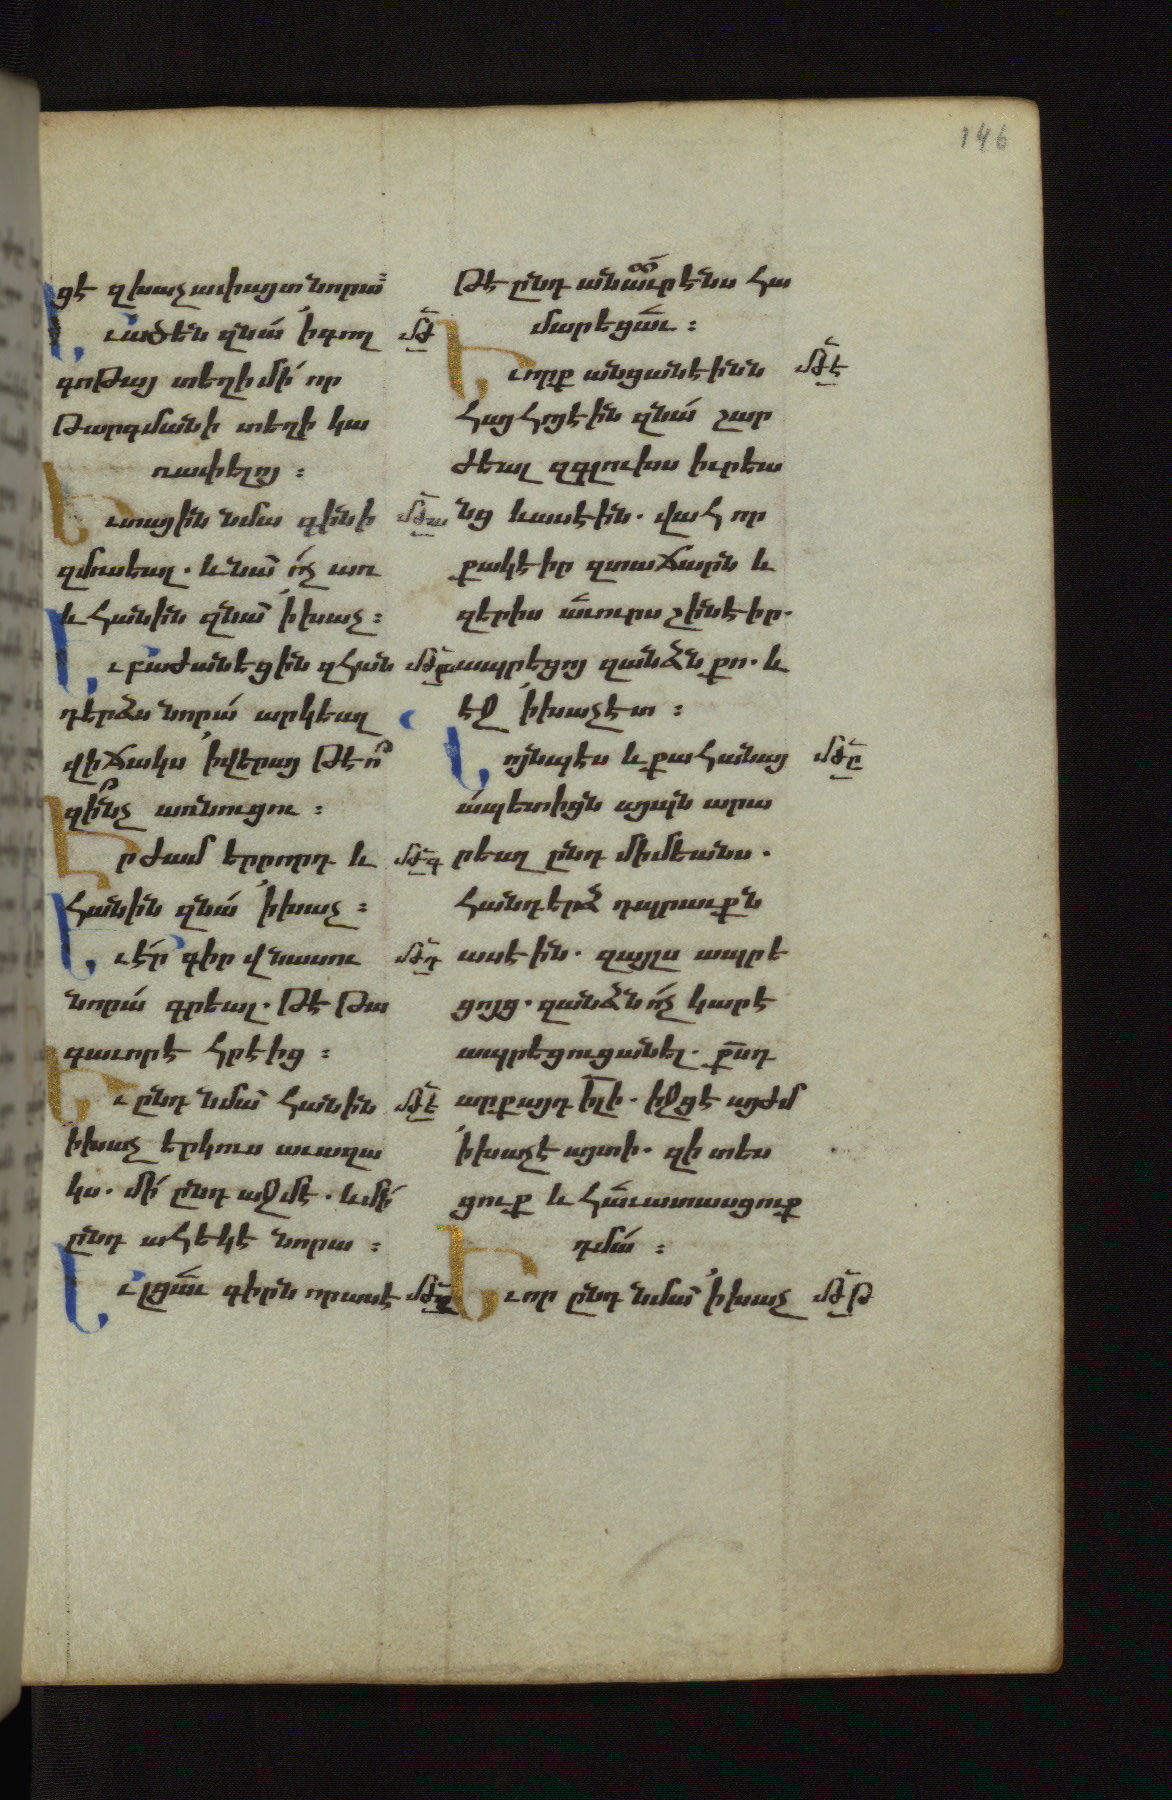 146
ցէ զխաչափայտ նորա՝
Եւ ածեն զնա՛ ՛ի գող մժ
գոթայ տեղի մի՛ որ
թարգմանի տեղի կա
ռափելոյ ։
Եւ տային նմա գինի մժա
զմռսեալ . և նա՛ ո՛չ առ
և հանին զնա՛ ՛ի խաչ ։
Եւ բաժանեցին զհան մժբ
դերձս նորա՛ արկեալ
վիճակս ՛ի վերայ թէ ո՞
զի՞նչ առնուցու ։
Եր ժամ երրորդ և մժգ
հանին զնա՛ ՛ի խաչ ։
Եւ է՛ր գիր վնասու մժդ
նորա՛ գրեալ . թէ թա
գաւոր է հրէից ։
Եւ ընդ նմա՛ հանին մժե
ի խաչ երկուս աւազա
կս . մի՛ ընդ աջմէ . և մի՛
ընդ ահեկէ նորա ։
Եւ լցաւ գիրն որ ասէ մժզ
թէ ընդ անաւրէնս հա
մարեցաւ ։
Եւ որք անցանէինն մժէ
հայհոյէին զնա՛ շար
ժեալ զգլուխս իւրեա
նց և ասէին . վահ որ
քակէիր զտաճարն և
զերիս աւուրս շինէիր .
ապրեցոյ զանձն քո . և
էջ ՛ի խաչէտ ։
Նոյնպէս և քահանայ մժը
ա՛պետիցն այպն արա
րեալ ընդ միմեանս .
հանդերձ դպրաւքն
ասէին . զայլս ապրե
ցոյց . զանձն ո՛չ կարէ
ապրեցուցանել . քսդ
արքայդ իլի . իջցէ այժմ
՛ի խաչէ այտի . զի տես
ցուք և հաւատասցուք
դմա՛ ։
Եւ որ ընդ նմա՛ ՛ի խաչ մժթ